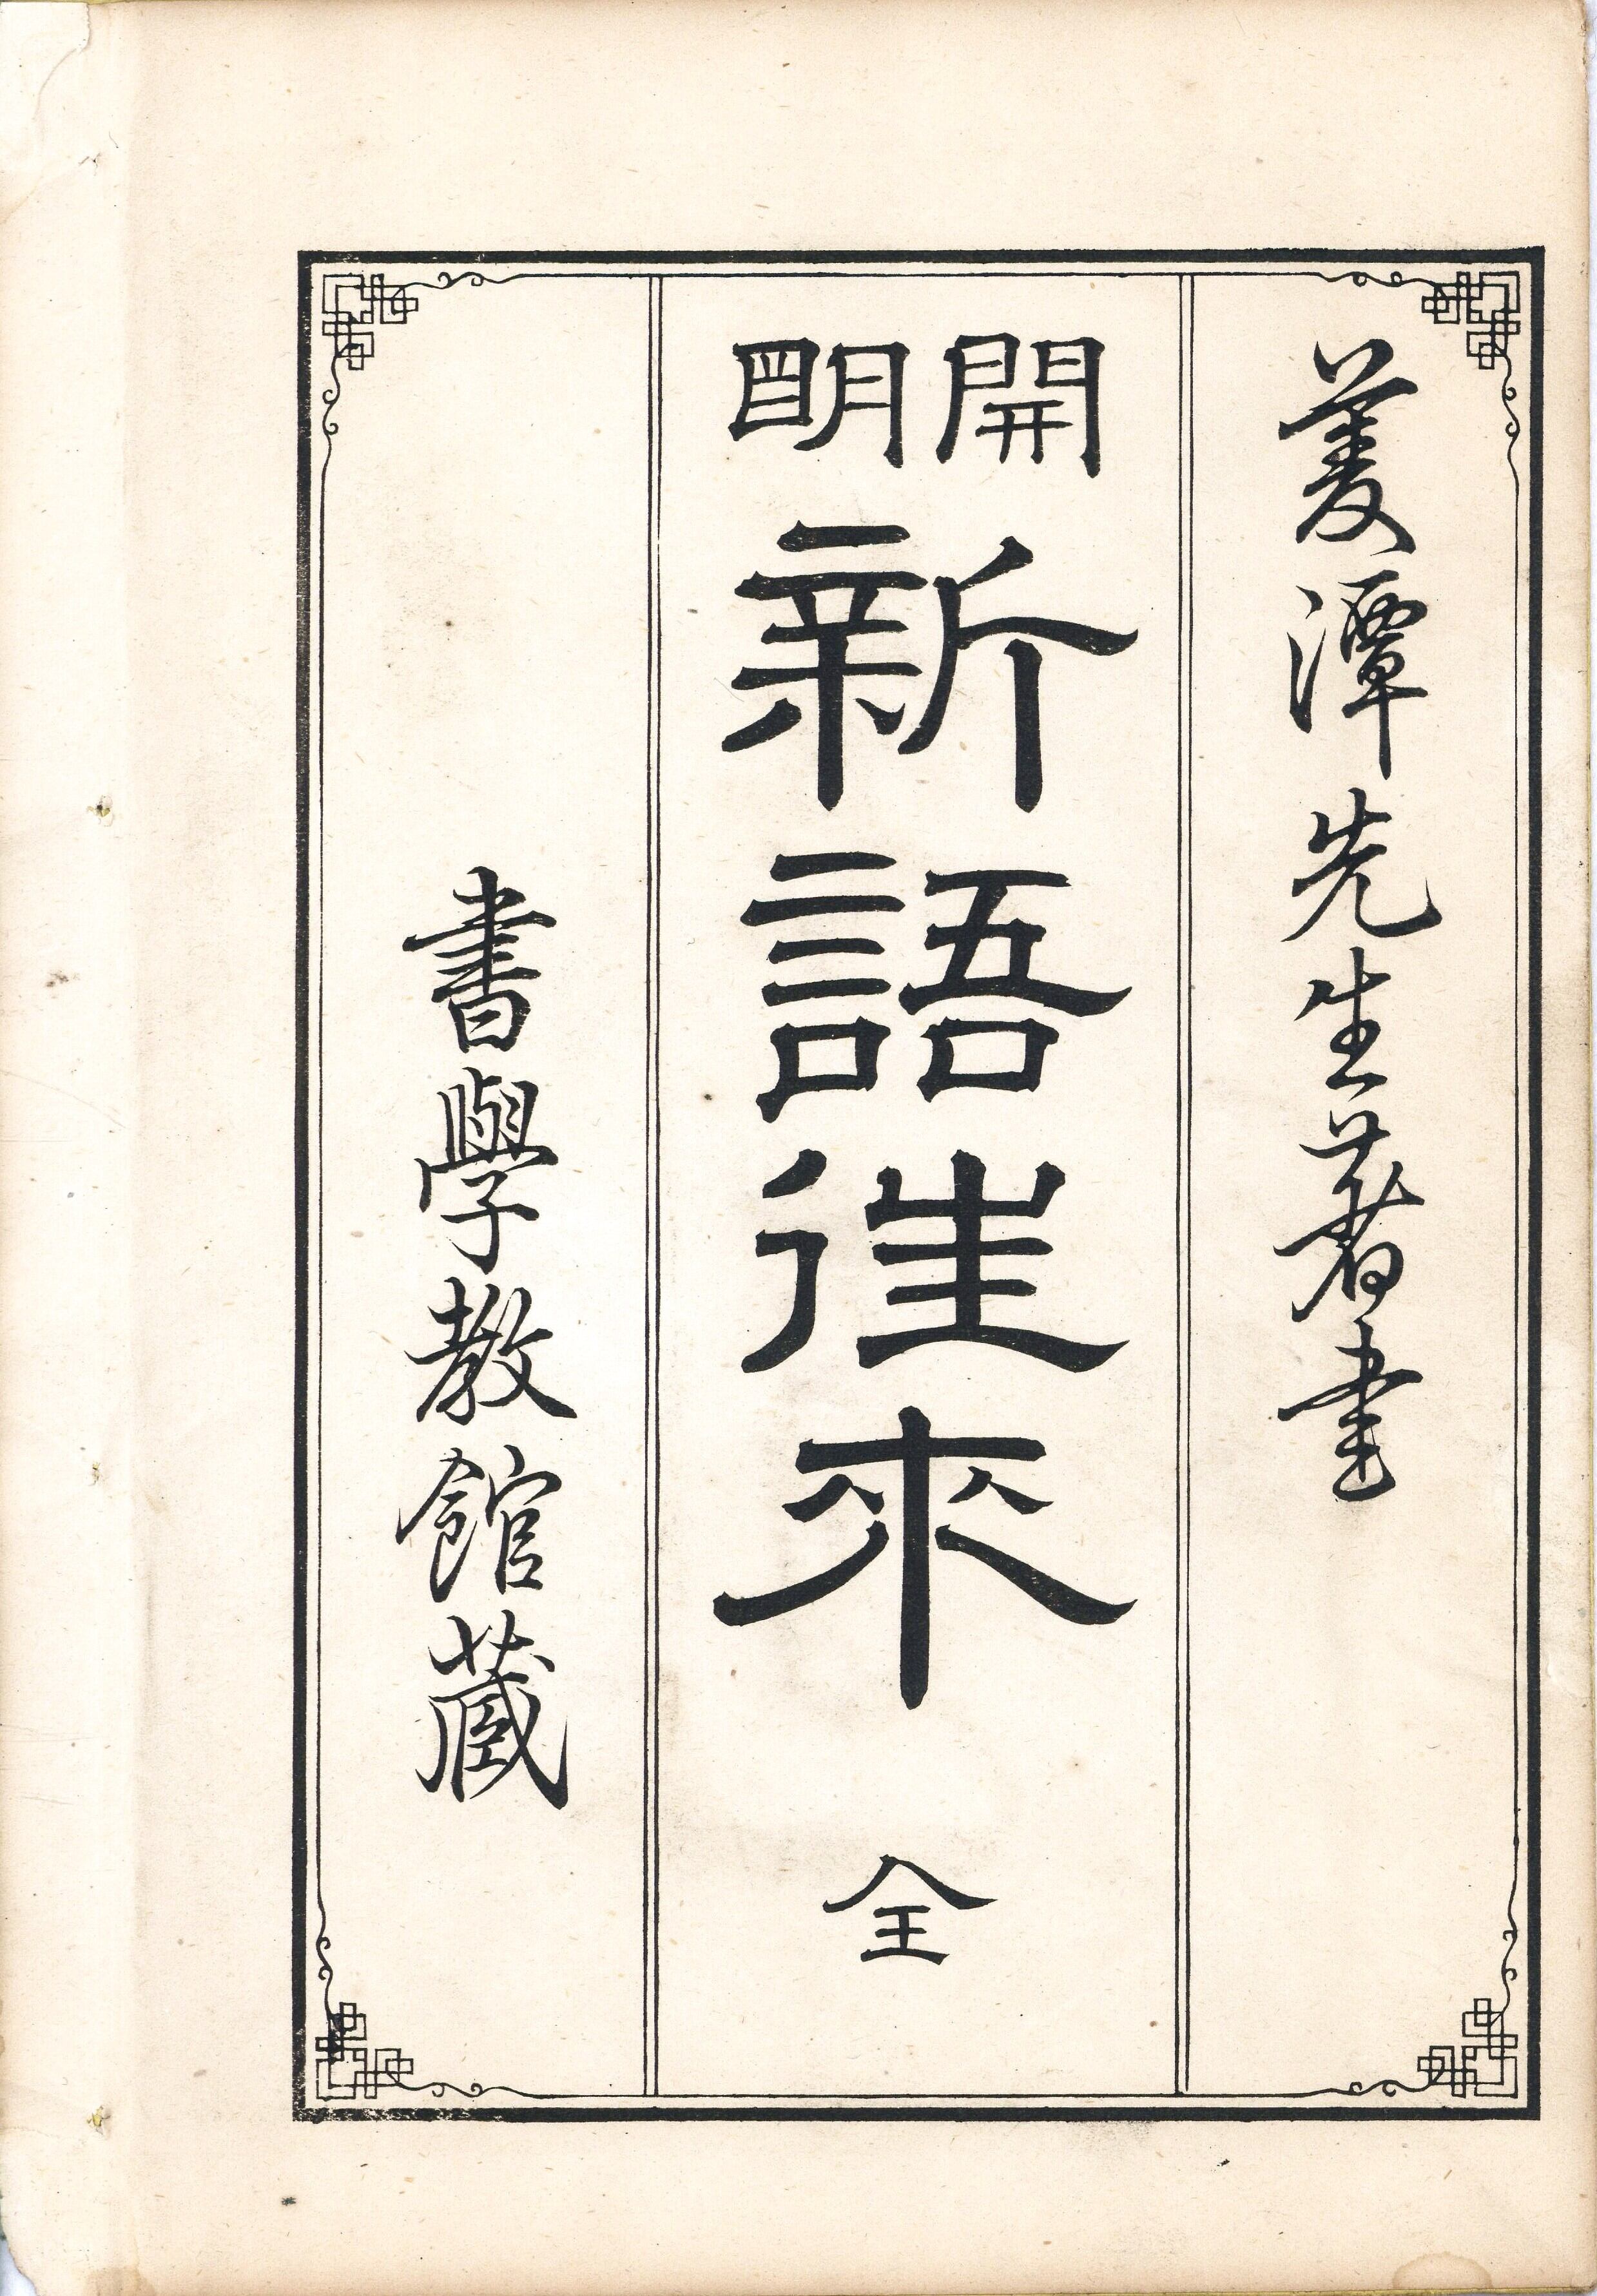 菱潭先生著書
開明
新語往來 全
書學教館藏